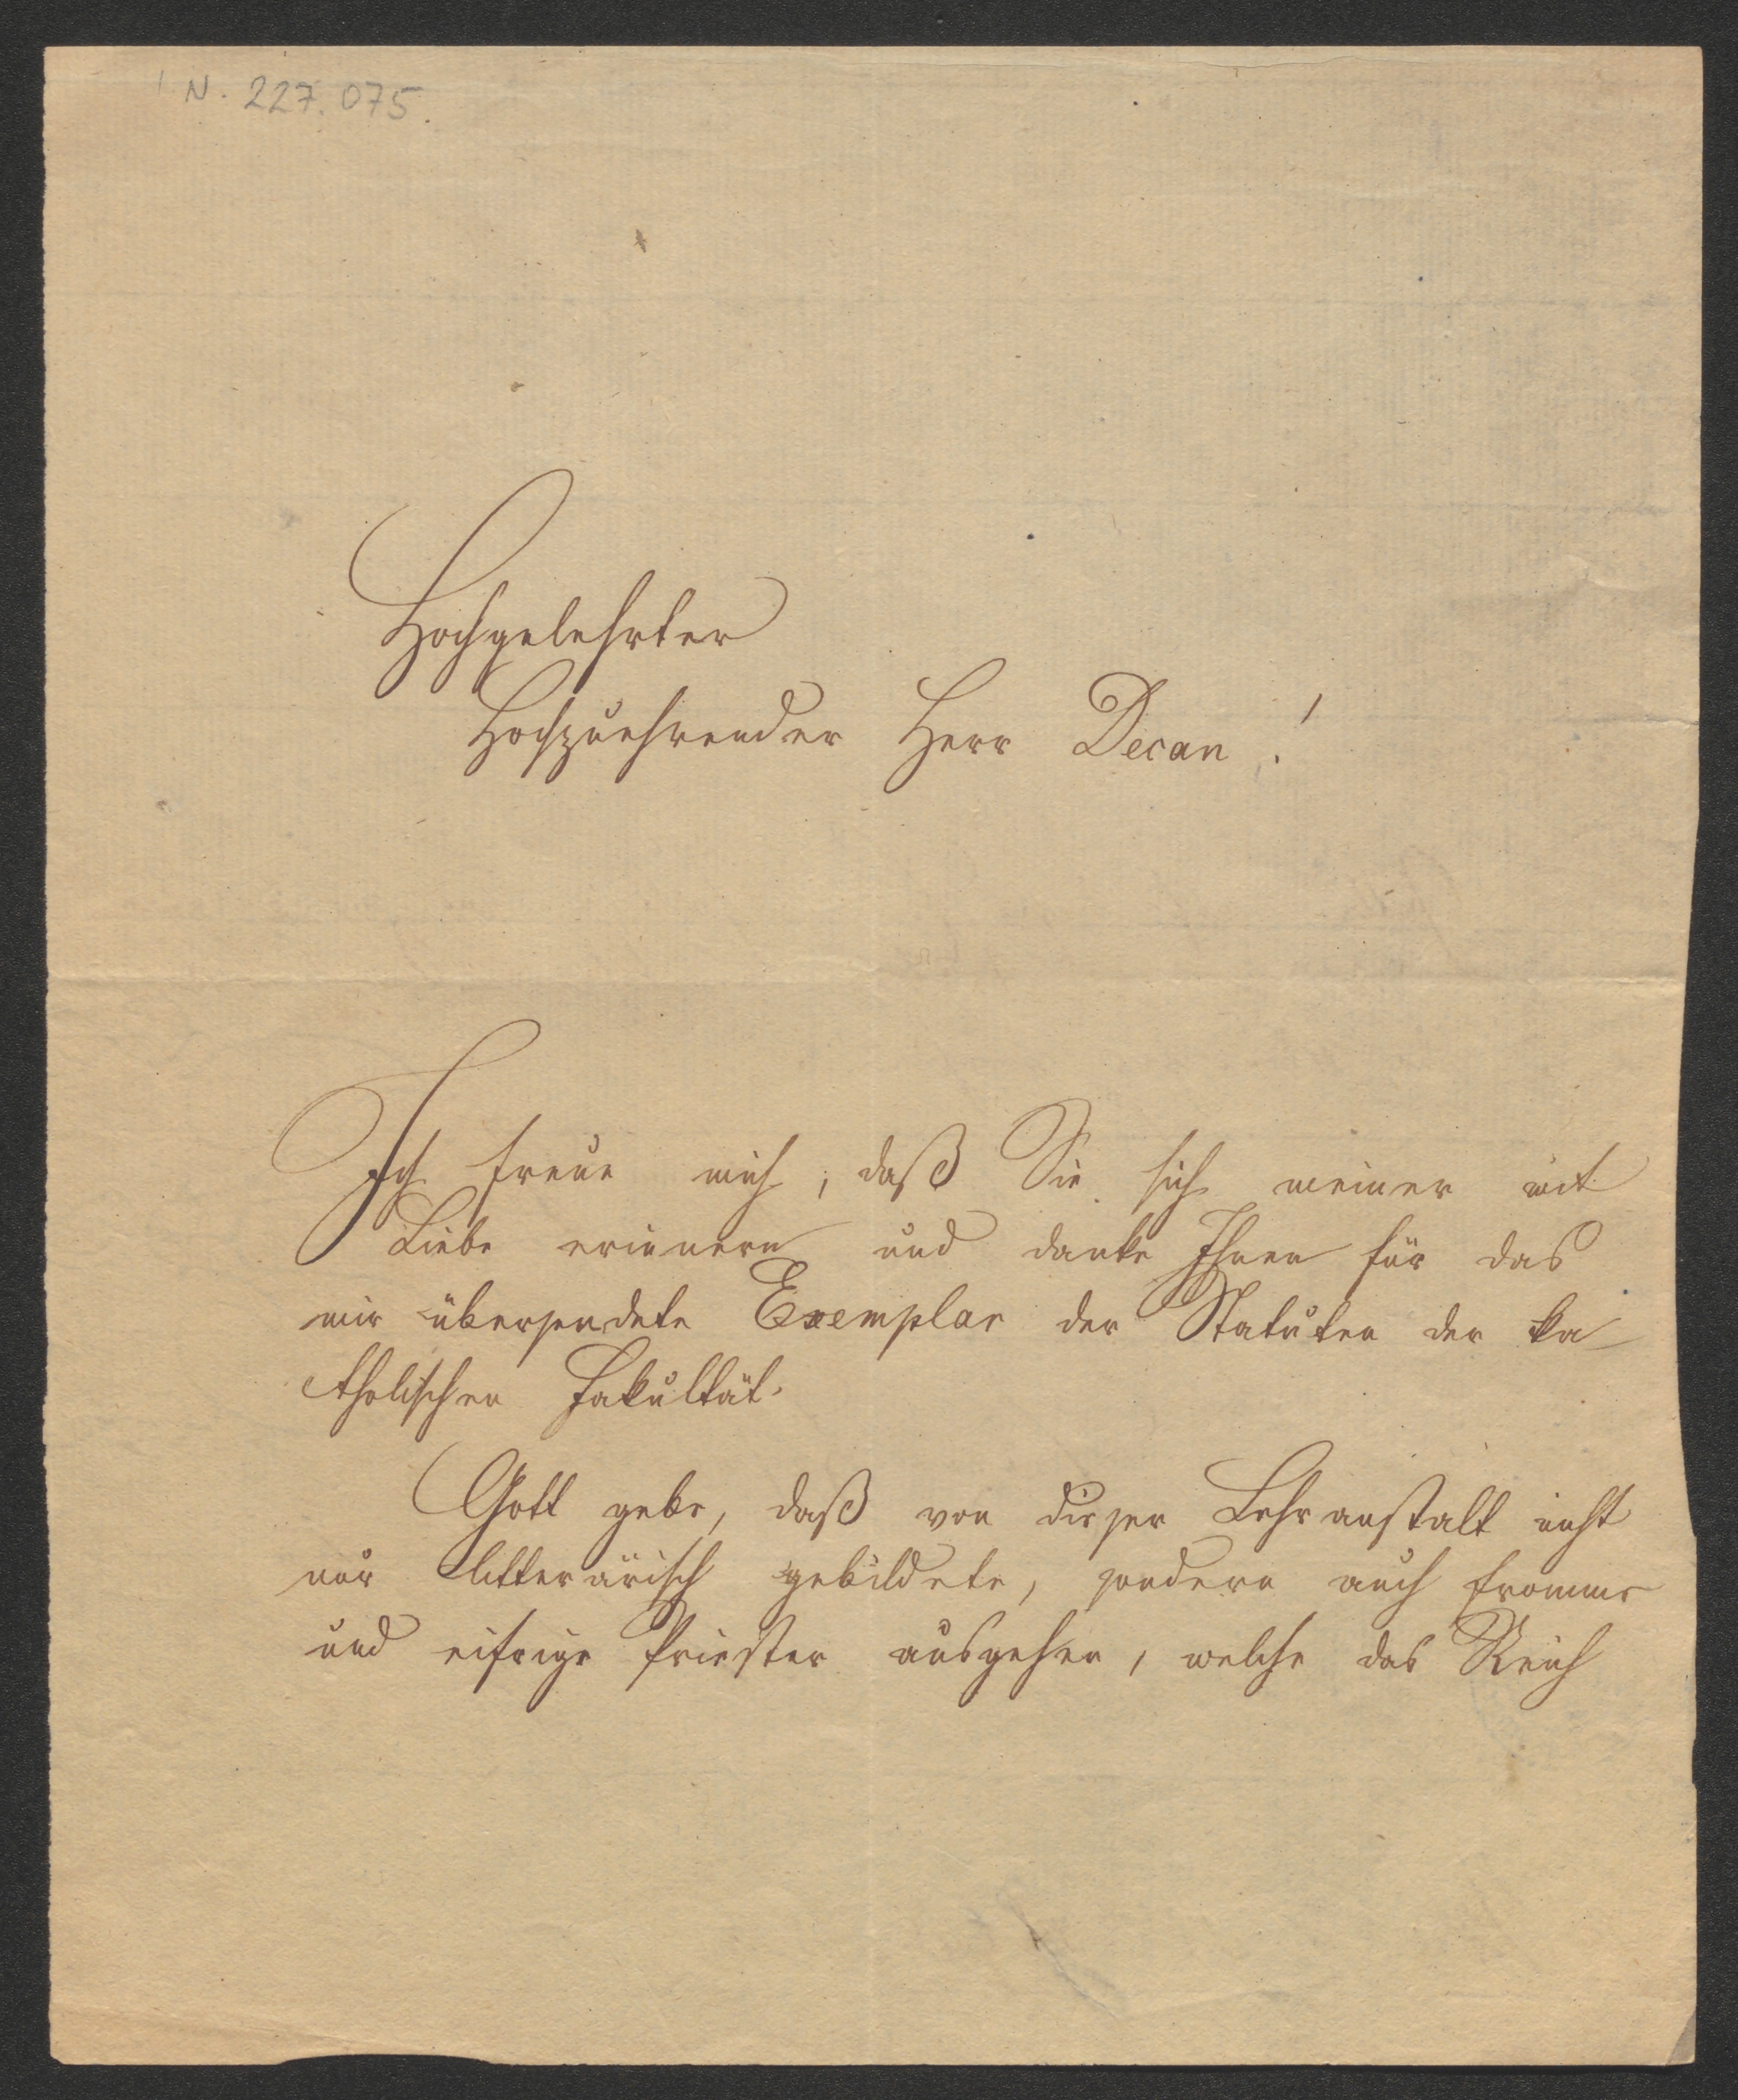 I. N. 227.075.
Hochgelehrter
Hochzuehrender Herr Decan!
Ich freue mich, daß Sie sich meiner mit
Liebe erinnern und danke Ihnen für das
mir übersendete Exemplar der Statuten der ka-
tholischen Fakultät.
Gott gebe, daß von dieser Lehranstalt nicht
nur litterärisch gebildete, sondern auch fromme
und eifrige Priester ausgehen, welche das Reich